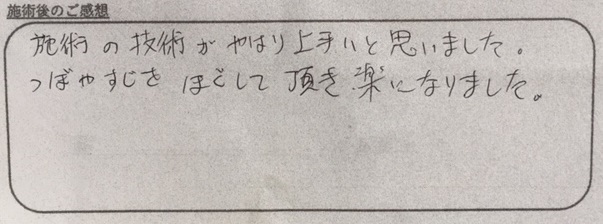 施術後のご感想
施術の技術がやはり上手いと思いました。
つぼやすじをほぐして頂き楽になりました。